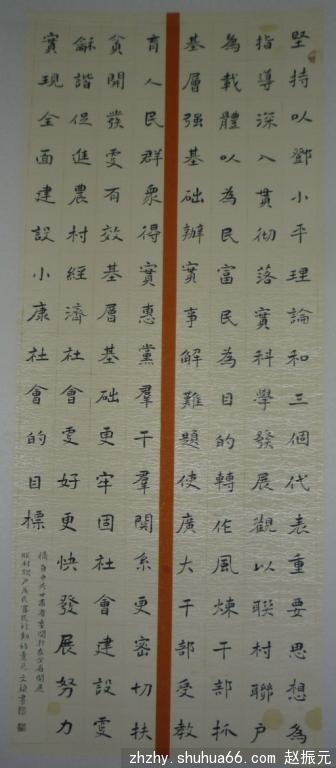 堅持以鄧小平理論和三個代表重要思想為
指導深入貫彻落實科學發展觀以聯村聯戶
為載體以為民富民為目的轉作風煉干部抓
基層强基础辦實事解難題使廣大干部受教
育人民群衆得實惠黨羣干羣關系更密切扶
貧開發更有效基層基础更牢固社會建設更
龢諧促進農村經濟社會更好更快發展努力
實現全面建設小康社會的目標
摘自中共甘肅省委關於在全省開展
聯村聯户為民富民行動的意見
zhzhy.shuhua66.com 赵振元